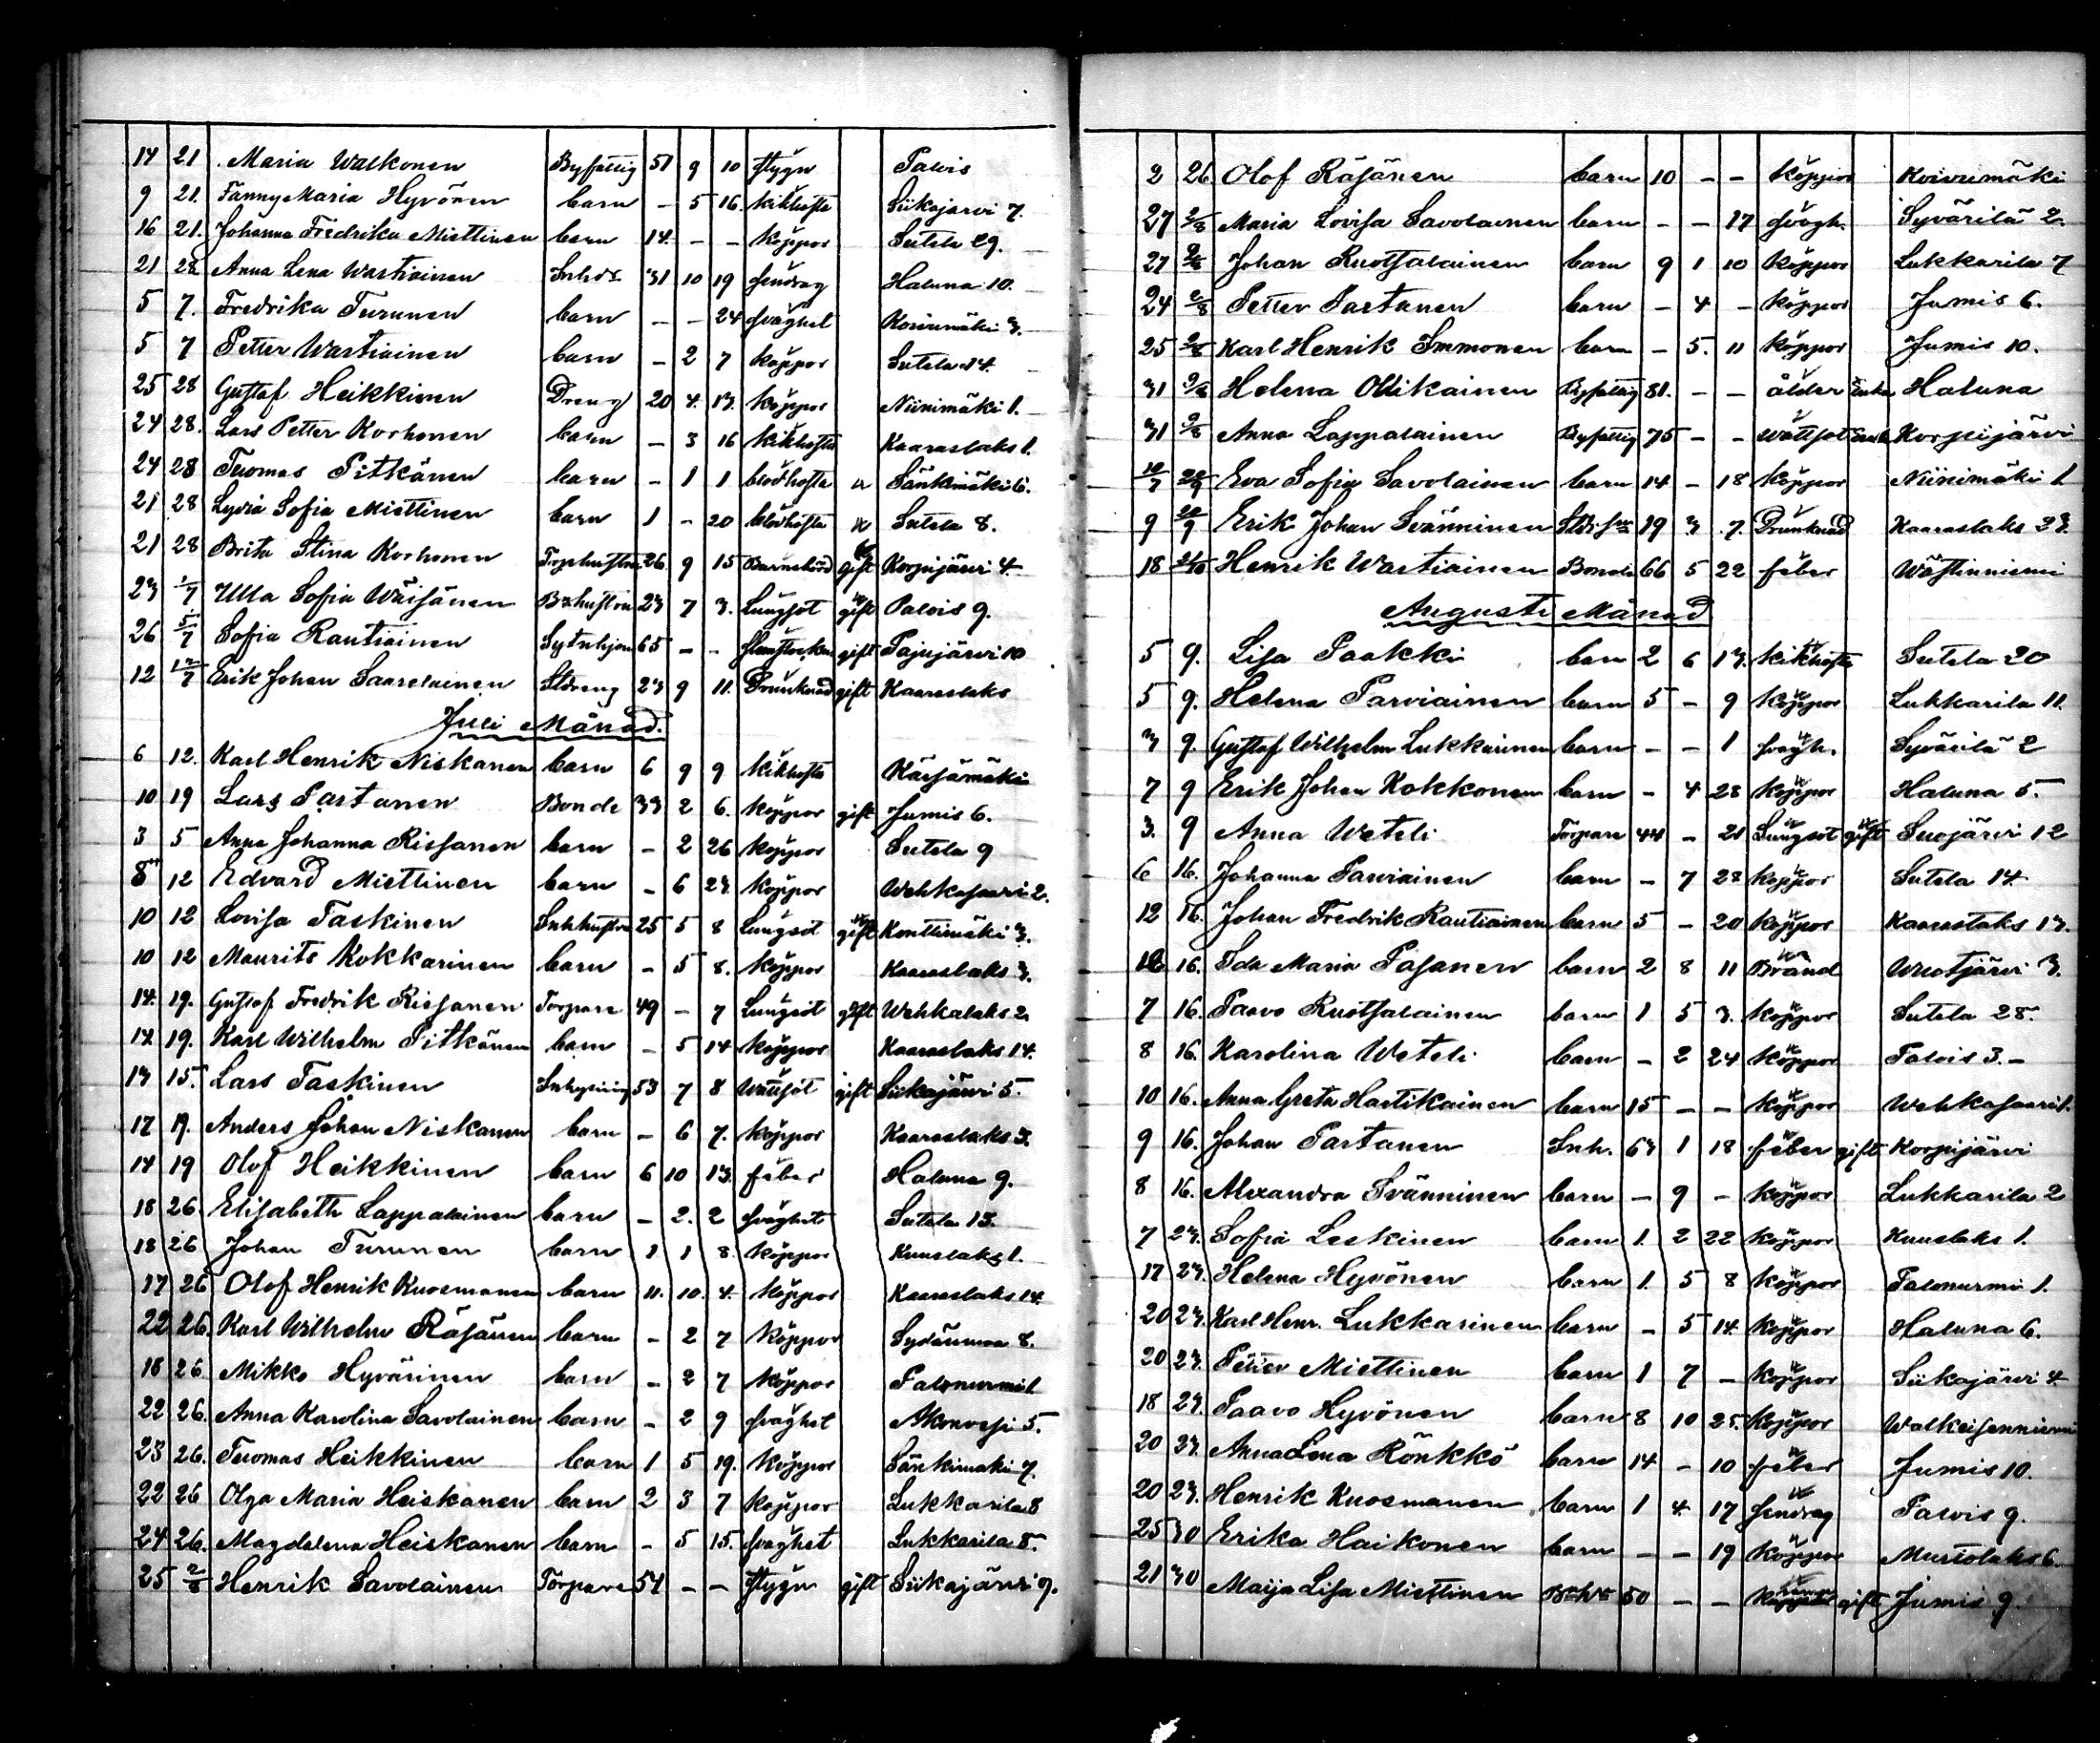 14 21. Maria Walkonen Byfattig 51 9 10 stygn Palois
9 21. Fanny Maria Hyvönen barn – 5 16. kikhosta Siikajärvi 7.
16 21. Johanna Fredrika Miettinen barn 14. – – koppor Sutela 29.
21 28 Anna Lena Wartiainen Inhds 31 10 19 Haluna 10.
5 7. Fredrika Turunen barn – – 24 svaghet Koivumäki 3.
5 7 Petter Wartiainen barn – 2 7 koppor Sutela 14.
25 28 Gustaf Heikkinen Dreng 20 4. 13. koppor Niinimäki 1.
24 28. Lars Petter Korhonen barn – 3 16 kikhosta Kaaraslaks 1.
24 28 Tuomas Pitkänen barn – 1 1 blodhosta Sänkimäki 6.
21 28 Lydia Sofia Miettinen barn 1 – 20 blodhosta Sutela 8.
21 28 Brita Stina Korhonen Torphustru 26. 9 15 Barnsbörd gift Korpijärvi 4.
23 1/7 Ulla Sofia Wäisänen Bhustru 23 7 3. Lungsot gift Palois 9.
26 5/7 Sofia Rautiainen Sytnhjon 65 – – gift Pajujärvi 10
12 12/7 Erik Johan Saarelainen Stdreng 23 9 11. Drunknad gift Kaaraslaks
Juli Månad.
6 12. Karl Henrik Niskanen barn 6 9 9 kikhosta Kärsämäki
10 19 Lars Partanen Bonde 33 2 6. koppor gift Jumis 6.
3 5 Anna Johanna Rissanen barn – 2 26 koppor Sutela 9
8 12 Edvard Miettinen barn – 6 23. koppor Wehkasaari 2.
10 12 Lovisa Taskinen Inhhustru 25 5 8 Lungsot gift Konttimäki 3.
10 12 Maurits Kokkarinen barn – 5 8. koppor Kaaraslaks 3.
14. 19. Gustaf Fredrik Rissanen Torpare 49 – 7 Lungsot gift Wehkalaks 2.
14. 19. Karl Wilhelm Pitkänen barn – 5 14 koppor Kaaraslaks 14.
13 15. Lars Taskinen Inhysing 53 7 8 Wattsot gift Siikajärvi 5.
17 19. Anders Johan Niskanen barn – 6 7. koppor Kaaraslaks 3.
14 19 Olof Heikkinen barn 6 10 13. feber Haluna 9.
18 26. Elisabeth Lappalainen barn – 2. 2 svaghet Sutela 13.
18 26 Johan Turunen barn 1 1 8. koppor Kuuslaks 1.
17 26 Olof Henrik Kuosmanen barn 11. 10. 4. koppor Kaaraslaks 14.
22 26. Karl Wilhelm Räsänen barn – 2 7 koppor Sydänmaa 8.
18 26 Mikko Hyvärinen barn – 2 7 koppor Palonurmi 1
22 26. Anna Karolina Savolainen barn – 2 9 svaghet Akonvesi 5.
23 26. Tuomas Heikkinen barn 1 5 19. koppor Sänkimäki 7.
22 26 Olga Maria Heiskanen barn 2 3 7 koppor Lukkarila 8
24 26. Magdalena Heiskanen barn – 5 15. svaghet Lukkarila 8.
25 2/8 Henrik Savolainen Torpare 51 – – stygn gift Siikajärvi 7.
2 26. Olof Räsänen barn 10 – – koppor Koivumäki
27 2/8 Maria Lovisa Savolainen barn – – 17 svagh. Syvärilä 2.
27 2/8 Johan Ruotsalainen barn 9 1 10 koppor Lukkarila 7
24 2/8 Petter Partanen barn – 4 – koppor Jumis 6.
25 2/8 Karl Henrik Immonen barn – 5. 11 koppor Jumis 10.
31 9/8 Helena Ollikainen Byfattig 81. – – ålder Enka Haluna
31 9/8 Anna Lappalainen Byfattig 75 – – Wattsot Enka Korpijärvi
10/7 Eva Sofia Savolainen barn 14 – 18 koppor Niinimäki 1
9 20/9 Erik Johan Svänninen 19 3 7. Drunknad Kaaraslaks 23.
18 Henrik Wartiainen Bonde 66 5 22 feber Wästinniemi
Augusti Månad
5 9. Lisa Paakki barn 2 6 13. kikhosta Sutela 20
5 9. Helena Parviainen barn 5 – 9 koppor Lukkarila 11.
3 9. Gustaf Wilhelm Lukkarinen barn – – 1 svagh. Syvärilä 2
7 9 Erik Johan Kokkonen barn – 4 28 koppor Haluna 5.
3. 9 Anna Weteli Torpare 44 – 21 Lungsot gift Suojärvi 12
6 16. Johanna Parviainen barn – 7 28 koppor Sutela 14.
12 16. Johan Fredrik Rautiainen barn 5 – 20 koppor Kaaraslaks 13.
12 16. Ida Maria Pasanen barn 2 8 11 Brand Wuotjärvi 3.
7 16. Paavo Ruotsalainen barn 1 5 3. koppor Sutela 28.
8 16. Karolina Weteli barn – 2 24 koppor Palois 3. –
10 16. Anna Greta Hartikainen barn 15 – – koppor Wehkasaari 1.
9 16. Johan Partanen Inh. 63 1 18 feber gift Korpijärvi
8 16. Alexandra Svänninen barn – 9 – koppor Lukkarila 2
7 23. Sofia Leskinen barn 1. 2 22 koppor Kuuslaks 1.
17 23. Helena Hyvönen barn 1. 5 8 koppor Palonurmi 1.
20 23. Karl Henr. Lukkarinen barn – 5 14. koppor Haluna 6.
20 23. Petter Miettinen barn 1 7 – koppor Siikajärvi 4.
18 23. Paavo Hyvönen barn 8 10 25. koppor Walkeisenniemi
20 23. Anna Lena Rönkkö barn 14 – 10 feber Jumis 10.
20 23. Henrik Kuosmanen barn 1 4. 17 Palois 9.
25 30 Erika Haikonen barn – – 19 koppor Mustolaks 6.
21 30 Maija Lisa Miettinen 50 – – gift Jumis 9.